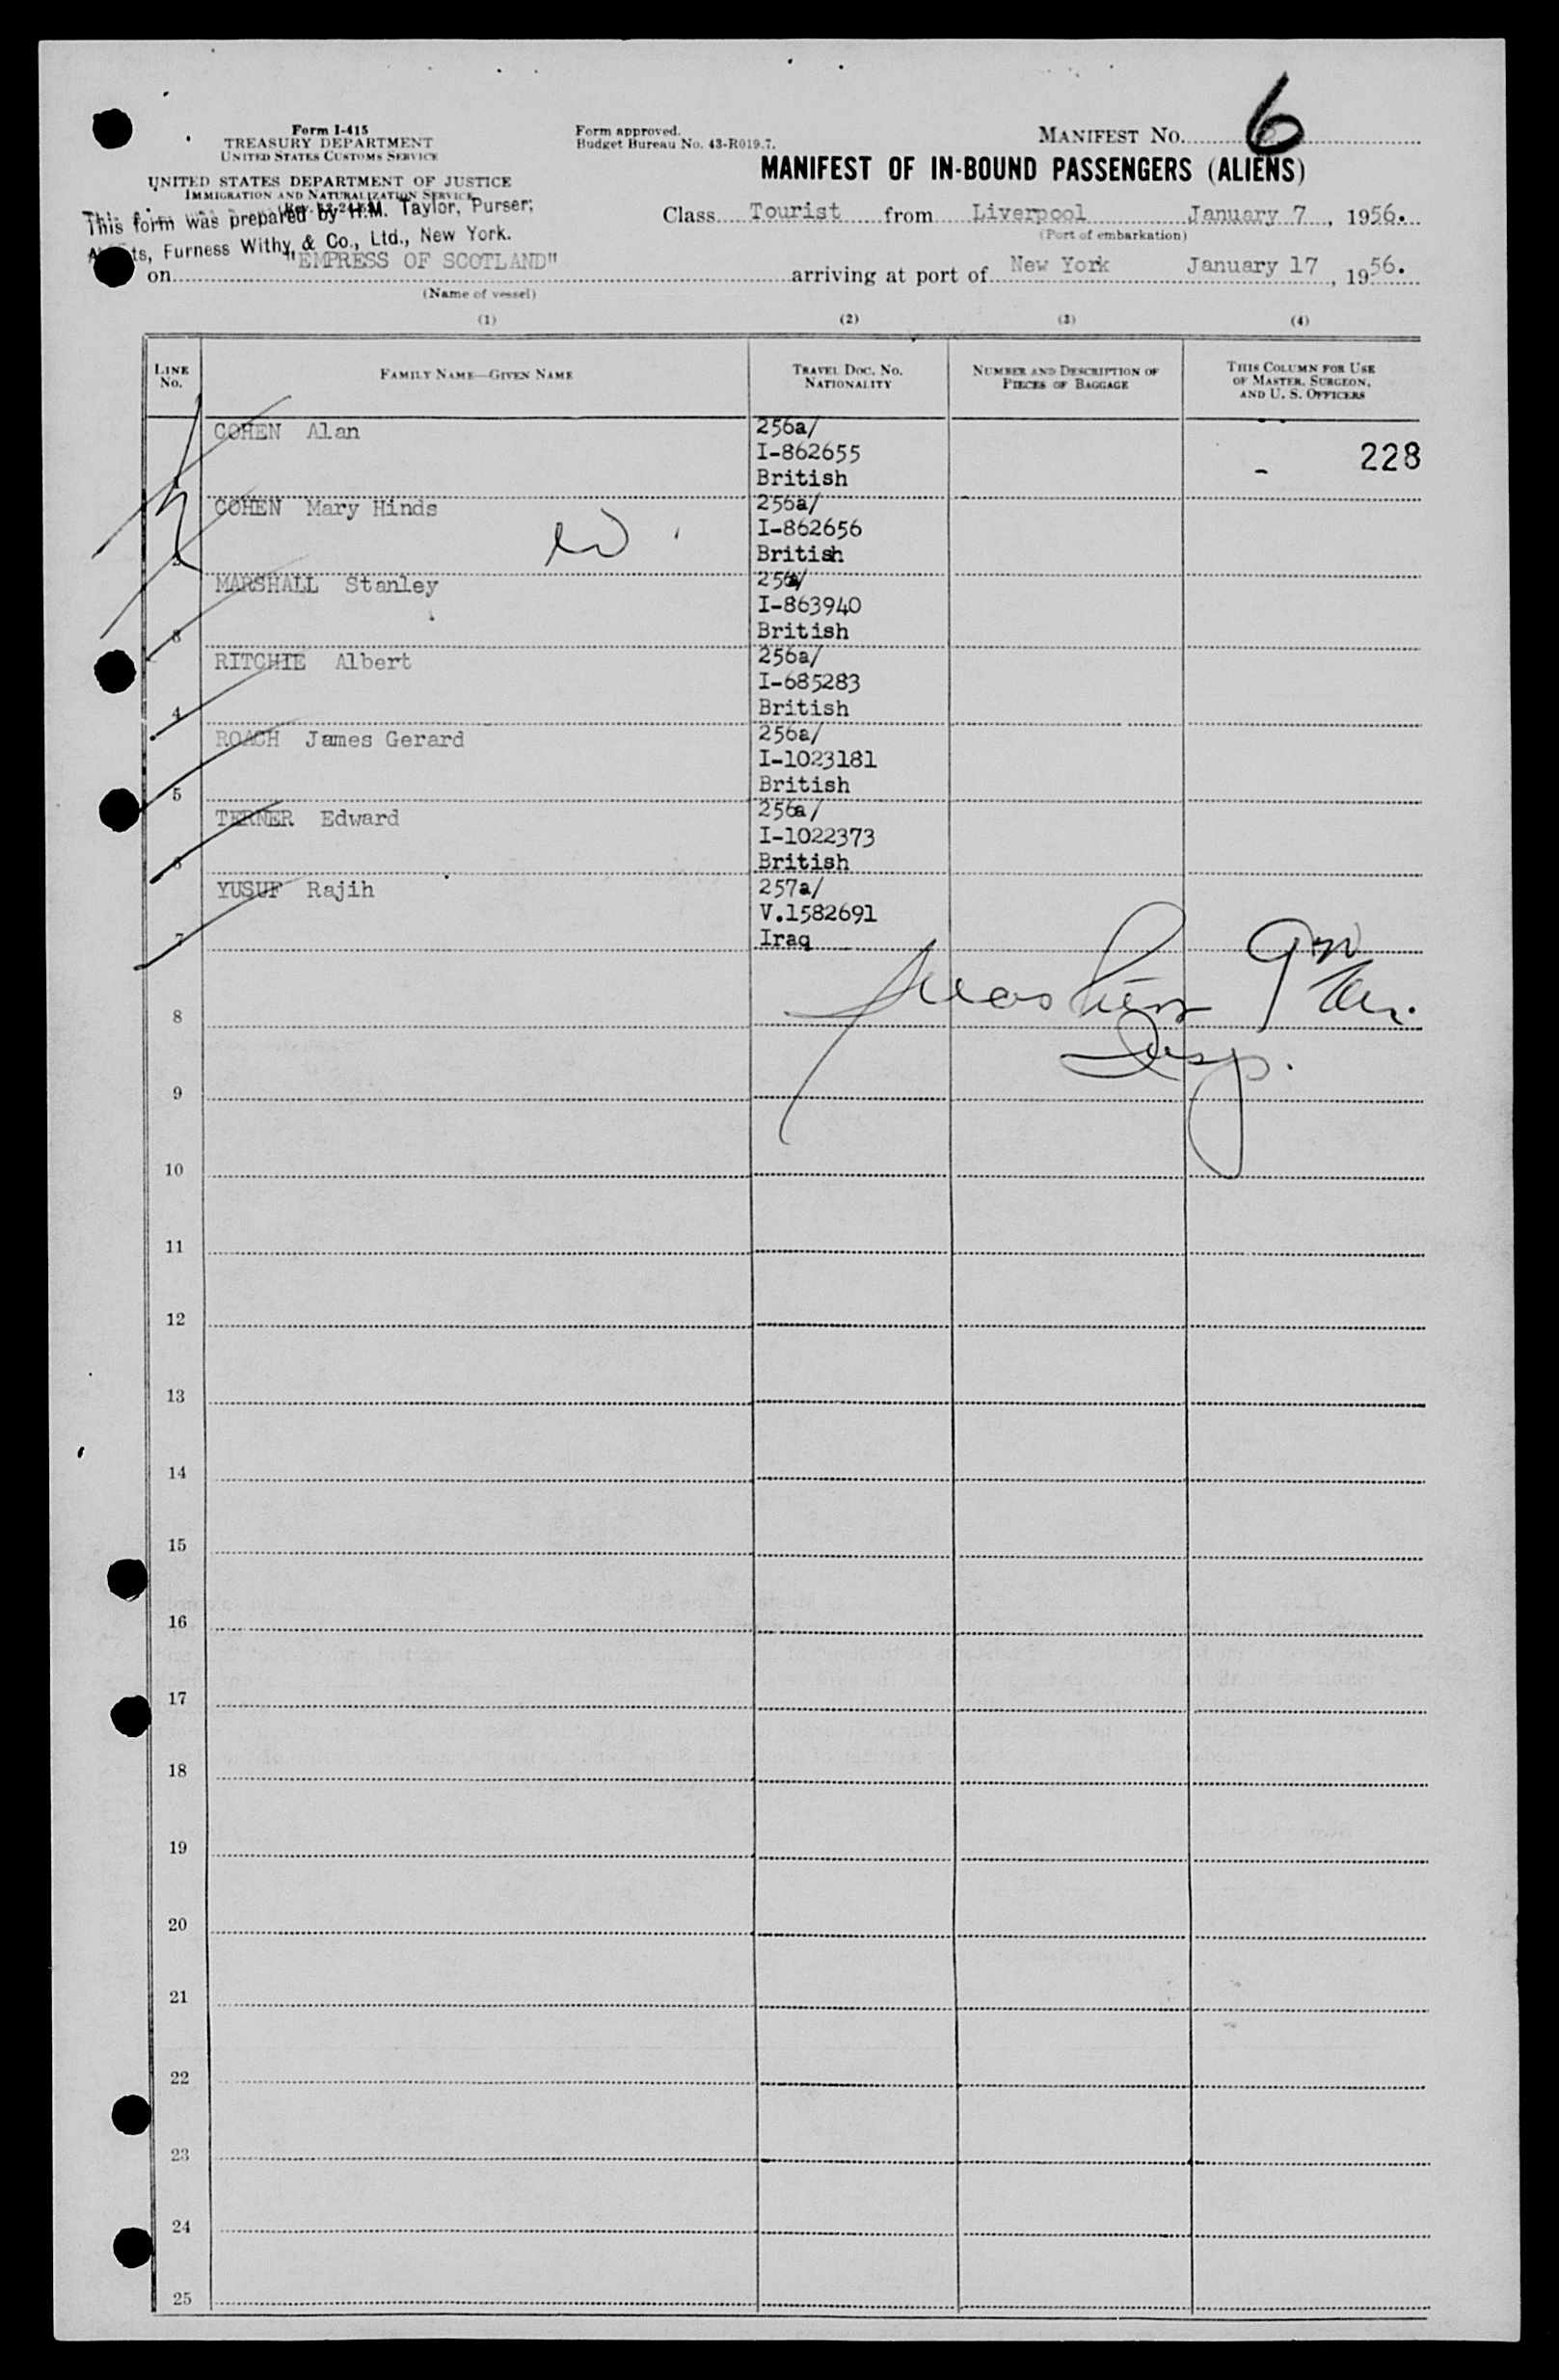 6
Form I-415
TREASURY DEPARTMENT
UNITED STATES CUSTOMS SERVICE
Form approved.
Budget Bureau No. 43-R019.7.
MANIFEST NO.
MANIFEST OF IN-BOUND PASSENGERS (ALIENS)
UNITED STATES DEPARTMENT OF JUSTICE
IMMIGRATION AND NATURALIZATION SERVICE
This form was prepared by H.M. Taylor, Purser;
Class Tourist from Liverpool January 7, 1956.
(Port of embarkation)
Furness Withy, & Co., Ltd., New York.
on "EMPRESS OF SCOTLAND" arriving at port of New York January 17, 1956.
(Name of vessel)
(1) (2) (3) (4)
LINE No. FAMILY NAME—GIVEN NAME TRAVEL DOC. NO. NATIONALITY NUMBER AND DESCRIPTION OF PIECES OF BAGGAGE THIS COLUMN FOR USE OF MASTER, SURGEON, AND U. S. OFFICERS
COHEN Alan 256a/
I-862655 228
British
COHEN Mary Hinds 256a/
I-862656
British
MARSHALL Stanley 256a/
I-863940
3 British
RITCHIE Albert 256a/
I-685283
4 British
ROACH James Gerard 256a/
I-1023181
5 British
TERNER Edward 256a/
I-1022373
6 British
YUSUF Rajih 257a/
V.1582691
7 Iraq
8
Insp.
9
10
11
12
13
14
15
16
17
18
19
20
21
22
23
24
25